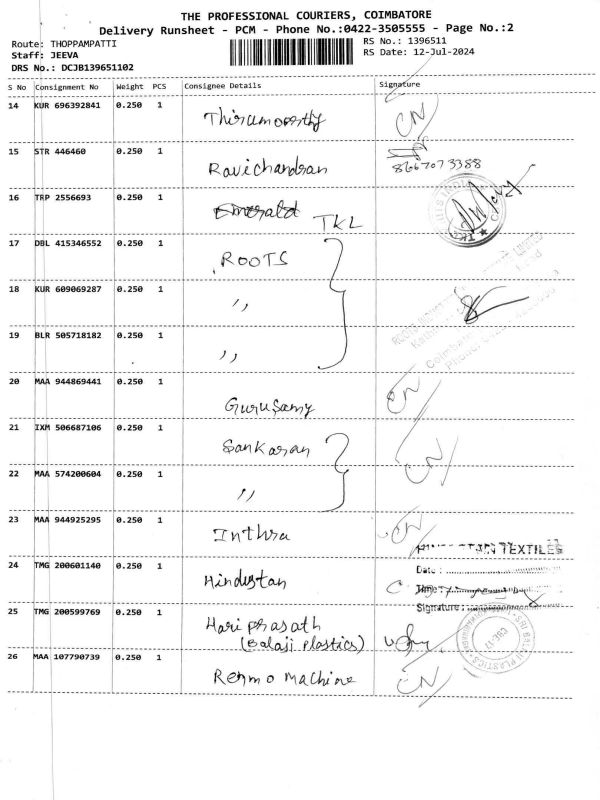 THE PROFESSIONAL COURIERS, COIMBATORE
Delivery Runsheet - PCM - Phone No.:0422-3505555 - Page No.:2
Route: THOPPAMPATTI
Staff: JEEVA
DRS No.: DCJB139651102
RS No.: 1396511
RS Date: 12-Jul-2024
S No Consignment No Weight PCS Consignee Details Signature
14 KUR 696392841 0.250 1 Thirumoorthy CN
15 STR 446460 0.250 1 Ravichandran
8667073388
16 TRP 2556693 0.250 1 Emerald TKL
17 DBL 415346552 0.250 1 ROOTS
18 KUR 609069287 0.250 1 ,,
19 BLR 505718182 0.250 1 ,,
Coimbatore
Phone:
20 MAA 944869441 0.250 1 Gurusamy CN
21 IXM 506687106 0.250 1 Sankaran CN
22 MAA 574200604 0.250 1 ,,
23 MAA 944925295 0.250 1 Inthra CN
TEXTILES
24 TMG 200601140 0.250 1 Hindustan
Date :
Time :
Signature :
25 TMG 200599769 0.250 1 Hari prasath
(Balaji Plastics)
SRI BALAJI PLASTICS
CBE-17
26 MAA 107790739 0.250 1 Renmo machine CN